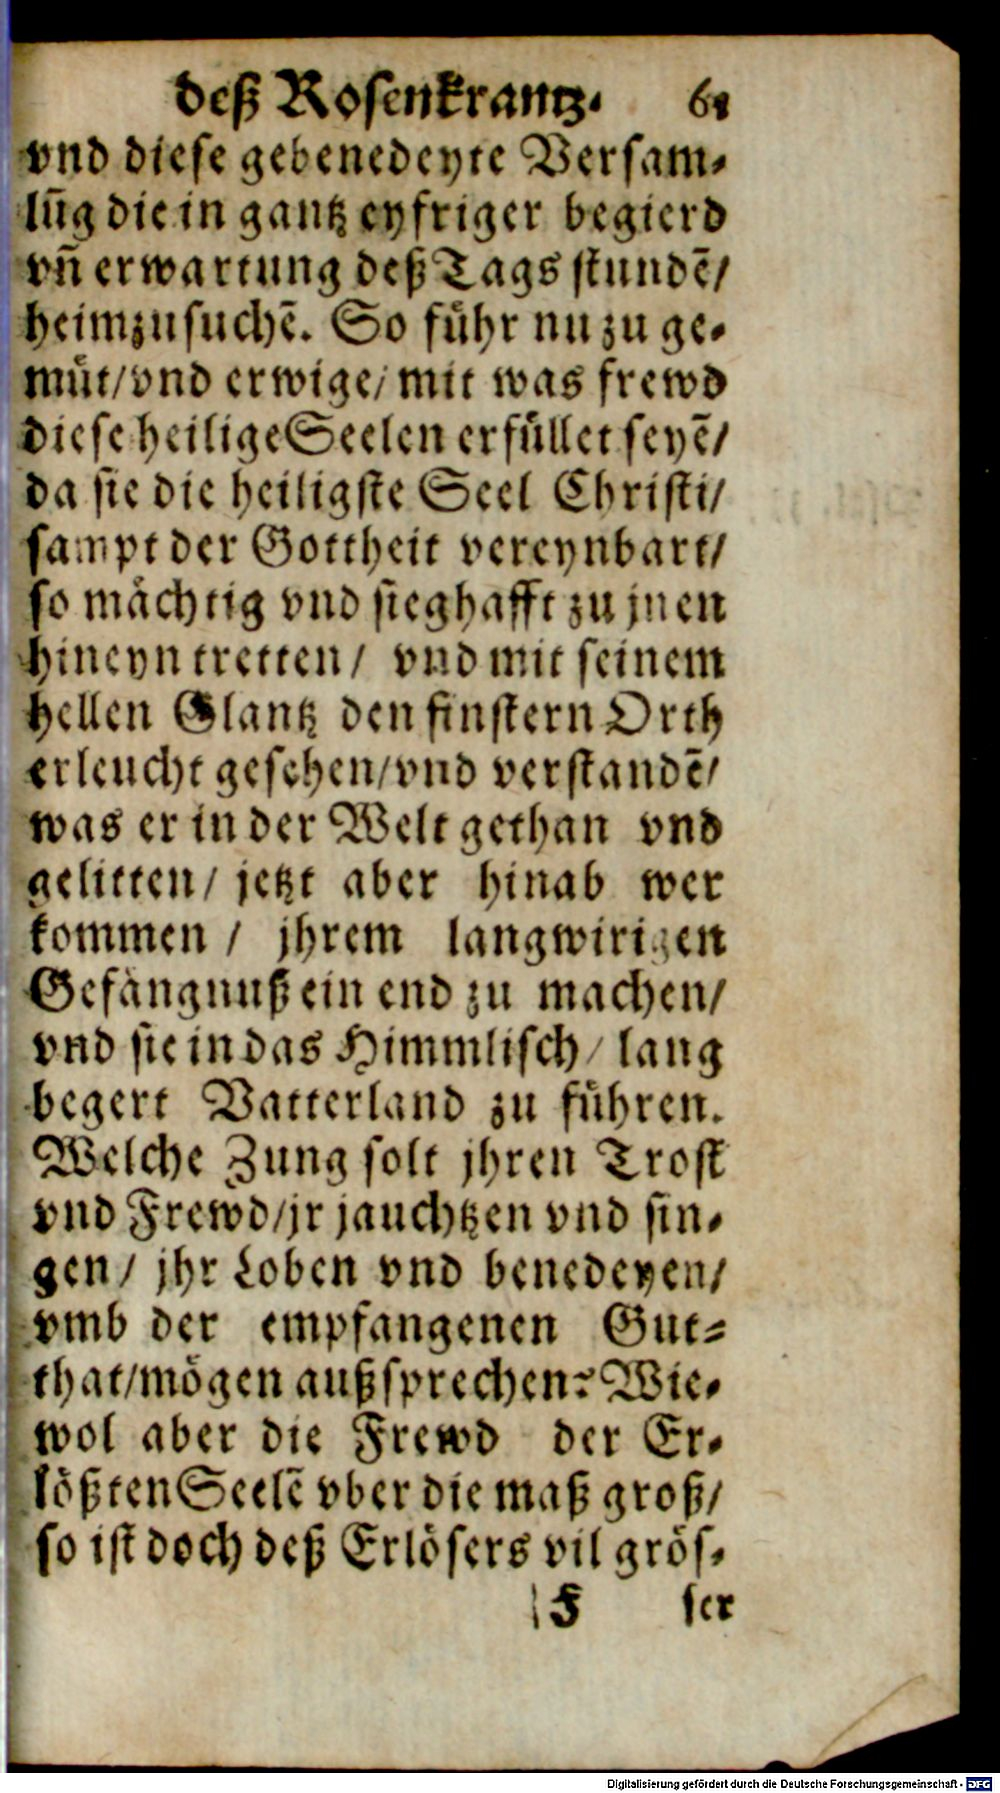 deß Rosenkrantz. 61
vnd diese gebenedeyte Versam-
lūg die in gantz eyfriger begierd
vn̄ erwartung deß Tags stundē/
heimzusuchē. So führ nu zu ge-
müt/vnd erwige/mit was frewd
diese heilige Seelen erfüllet seyē/
da sie die heiligste Seel Christi/
sampt der Gottheit vereynbart/
so mächtig vnd sieghafft zu jnen
hineyn tretten/ vnd mit seinem
hellen Glantz den finstern Orth
erleucht gesehen/vnd verstandē/
was er in der Welt gethan vnd
gelitten/ jetzt aber hinab wer
kommen / jhrem langwirigen
Gefängnuß ein end zu machen/
vnd sie in das Himmlisch/ lang
begert Vatterland zu führen.
Welche Zung solt jhren Trost
vnd Frewd/jr jauchtzen vnd sin-
gen/ jhr Loben vnd benedeyen/
vmb der empfangenen Gut-
that/mögen außsprechen? Wie-
wol aber die Frewd der Er-
lößten Seelē vber die maß groß/
so ist doch deß Erlösers vil grös-
F ser
Digitalisierung gefördert durch die Deutsche Forschungsgemeinschaft - DFG